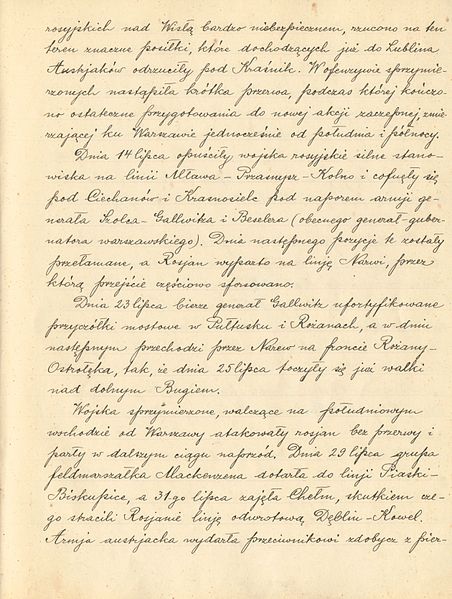 rosyjskich nad Wisłą bardzo niebezpiecznem, rzucono na ten
teren znaczne posiłki, które dochodzących już do Lublina
Austrjaków odrzuciły pod Kraśnik. W ofenzywie sprzymie-
rzonych nastąpiła krótka przerwa, podczas której kończo-
no ostateczne przygotowania do nowej akcji zaczepnej, zmie
rzającej ku Warszawie jednocześnie od południa i północy.
Dnia 14 lipca opuściły wojska rosyjskie silne stano-
wiska na linii Mława - Przasnysz - Kolno i cofnęły się
pod Ciechanów i Krasnosielc pod naporem armji ge-
nerała Szolca - Gallwitza i Beselera (obecnego generał-guber-
natora warszawskiego). Dnia następnego pozycje te zostały
przełamane, a Rosjan wyparto na linję Narwi, przez
którą przejście częściowo sforsowano.
Dnia 23 lipca bierze generał Gallwitz ufortyfikowane
przyczółki mostowe w Pułtusku i Rożanach, a w dniu
następnym przechodzi przez Narew na froncie Rożany-
Ostrołęka, tak, że dnia 25 lipca toczyły się już walki
nad dolnym Bugiem.
Wojska sprzymierzone, walczące na południowym
wschodzie od Warszawy atakowały rosjan bez przerwy i
parły w dalszym ciągu naprzód. Dnia 29 lipca grupa
feldmarszałka Mackenzena dotarła do linji Piaski-
Biskupice, a 31.go lipca zajęła Chełm, skutkiem cze-
go stracili Rosjanie linję odwrotową Dęblin - Kowel.
Armja austrjacka wydarła przeciwnikowi zdobycz z pier-